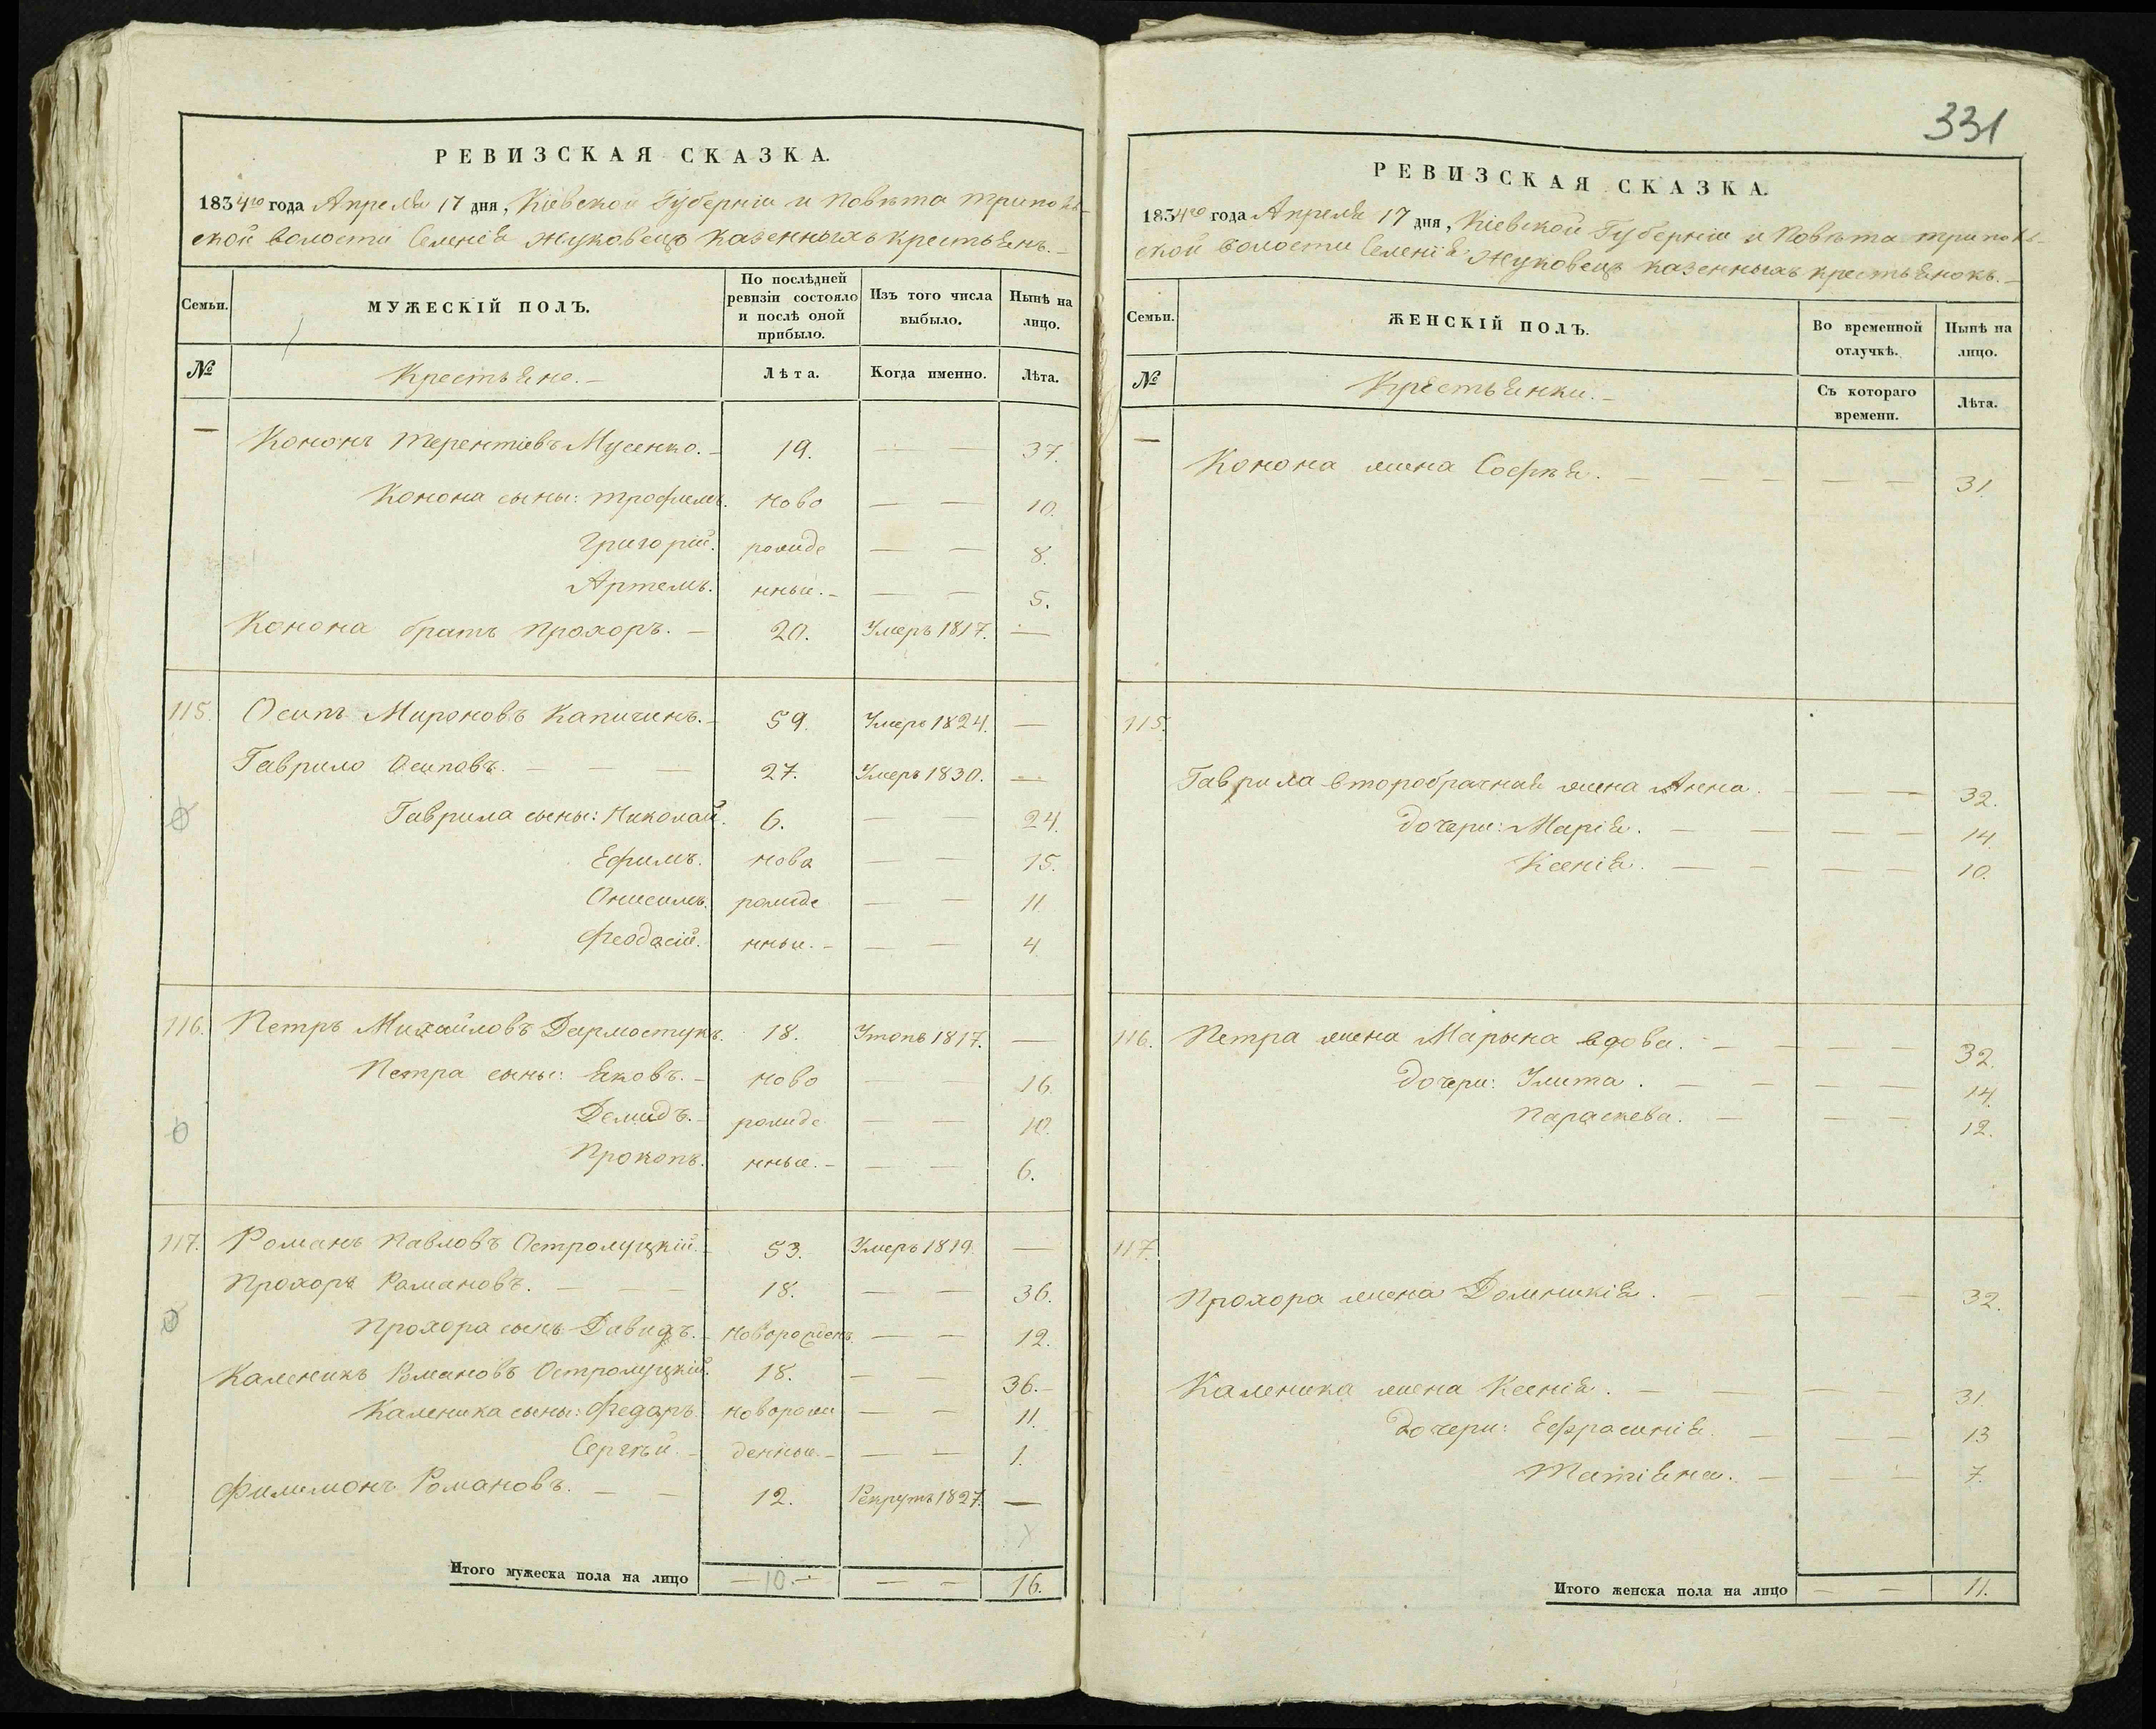 331
РЕВИЗСКАЯ СКАЗКА.
1834го года Апреля 17 дня, Кіевской Губерніи и Повѣта Триполь-
ской волости Селенія Жуковецъ Казенныхъ крестьянъ.
Семьи.
МУЖЕСКІЙ ПОЛЪ.
По послѣдней ревизіи состояло и послѣ оной прибыло.
Изъ того числа выбыло.
Нынѣ на лицо.
№
Крестьяне.
Лѣта.
Когда именно.
Лѣта.
— Кононъ Терентіевъ Мусенко. — 19. — — 37.
Конона сыны: Трофимъ. ново — — 10.
Григорій. рожде — — 8.
Артемъ. нные. — — — 5.
Конона братъ Прохоръ. — 20. Умеръ 1817. —
115. Осипъ Мироновъ Капичинъ. — 59. Умеръ 1824. —
Гаврило Осиповъ. — — — 27. Умеръ 1830. —
Гаврила сыны: Николай. 6. — — 24.
Ефимъ. ново — — 15.
Онисимъ. рожде — — 11
Феодосій. нные. — — — 4
116. Петръ Михайловъ Дармостукъ. 18. Утопъ 1817. —
Петра сыны: Яковъ. — ново — — 16
Демидъ. — рожде — — 10.
Прокопъ. нные. — — — 6.
117. Романъ Павловъ Остролуцкій. — 53. Умеръ 1819. —
Прохоръ Романовъ. — — — 18. — — 36.
Прохора сынъ Давидъ. — Новорожденъ — — 12.
Каленикъ Романовъ Остролуцкій. 18. — — 36. —
Каленика сыны: Федоръ. Новорож — — 11.
Сергѣй. — денные. — — — 1.
Филимонъ Романовъ. — — 12. Рекрутъ 1827. —
Итого мужеска пола на лицо — 10. — — — 16.
РЕВИЗСКАЯ СКАЗКА.
1834го года Апреля 17 дня, Кіевской Губерніи и Повѣта Триполь-
ской волости Селенія Жуковецъ казенныхъ крестьянокъ. —
Семьи.
ЖЕНСКІЙ ПОЛЪ.
Во временной отлучкѣ.
Нынѣ на лицо.
№
Крестьянки. —
Съ котораго времени.
Лѣта.
— Конона жена Софѣя. — — — — — 31.
115.
Гаврила второбрачная жена Анна. — — — 32.
дочери: Марія. — — — — 14.
Ксенія. — — — — 10.
116. Петра жена Марьяна вдова. — — — — 32.
дочери: Улита. — — — 14.
Параскева. — — — 12.
117.
Прохора жена Домникія. — — — — — 32.
Каленика жена Ксенія. — — — — 31.
дочери: Ефросинія. — — — 13
Татіяна. — — — 7.
Итого женска пола на лицо — — 11.